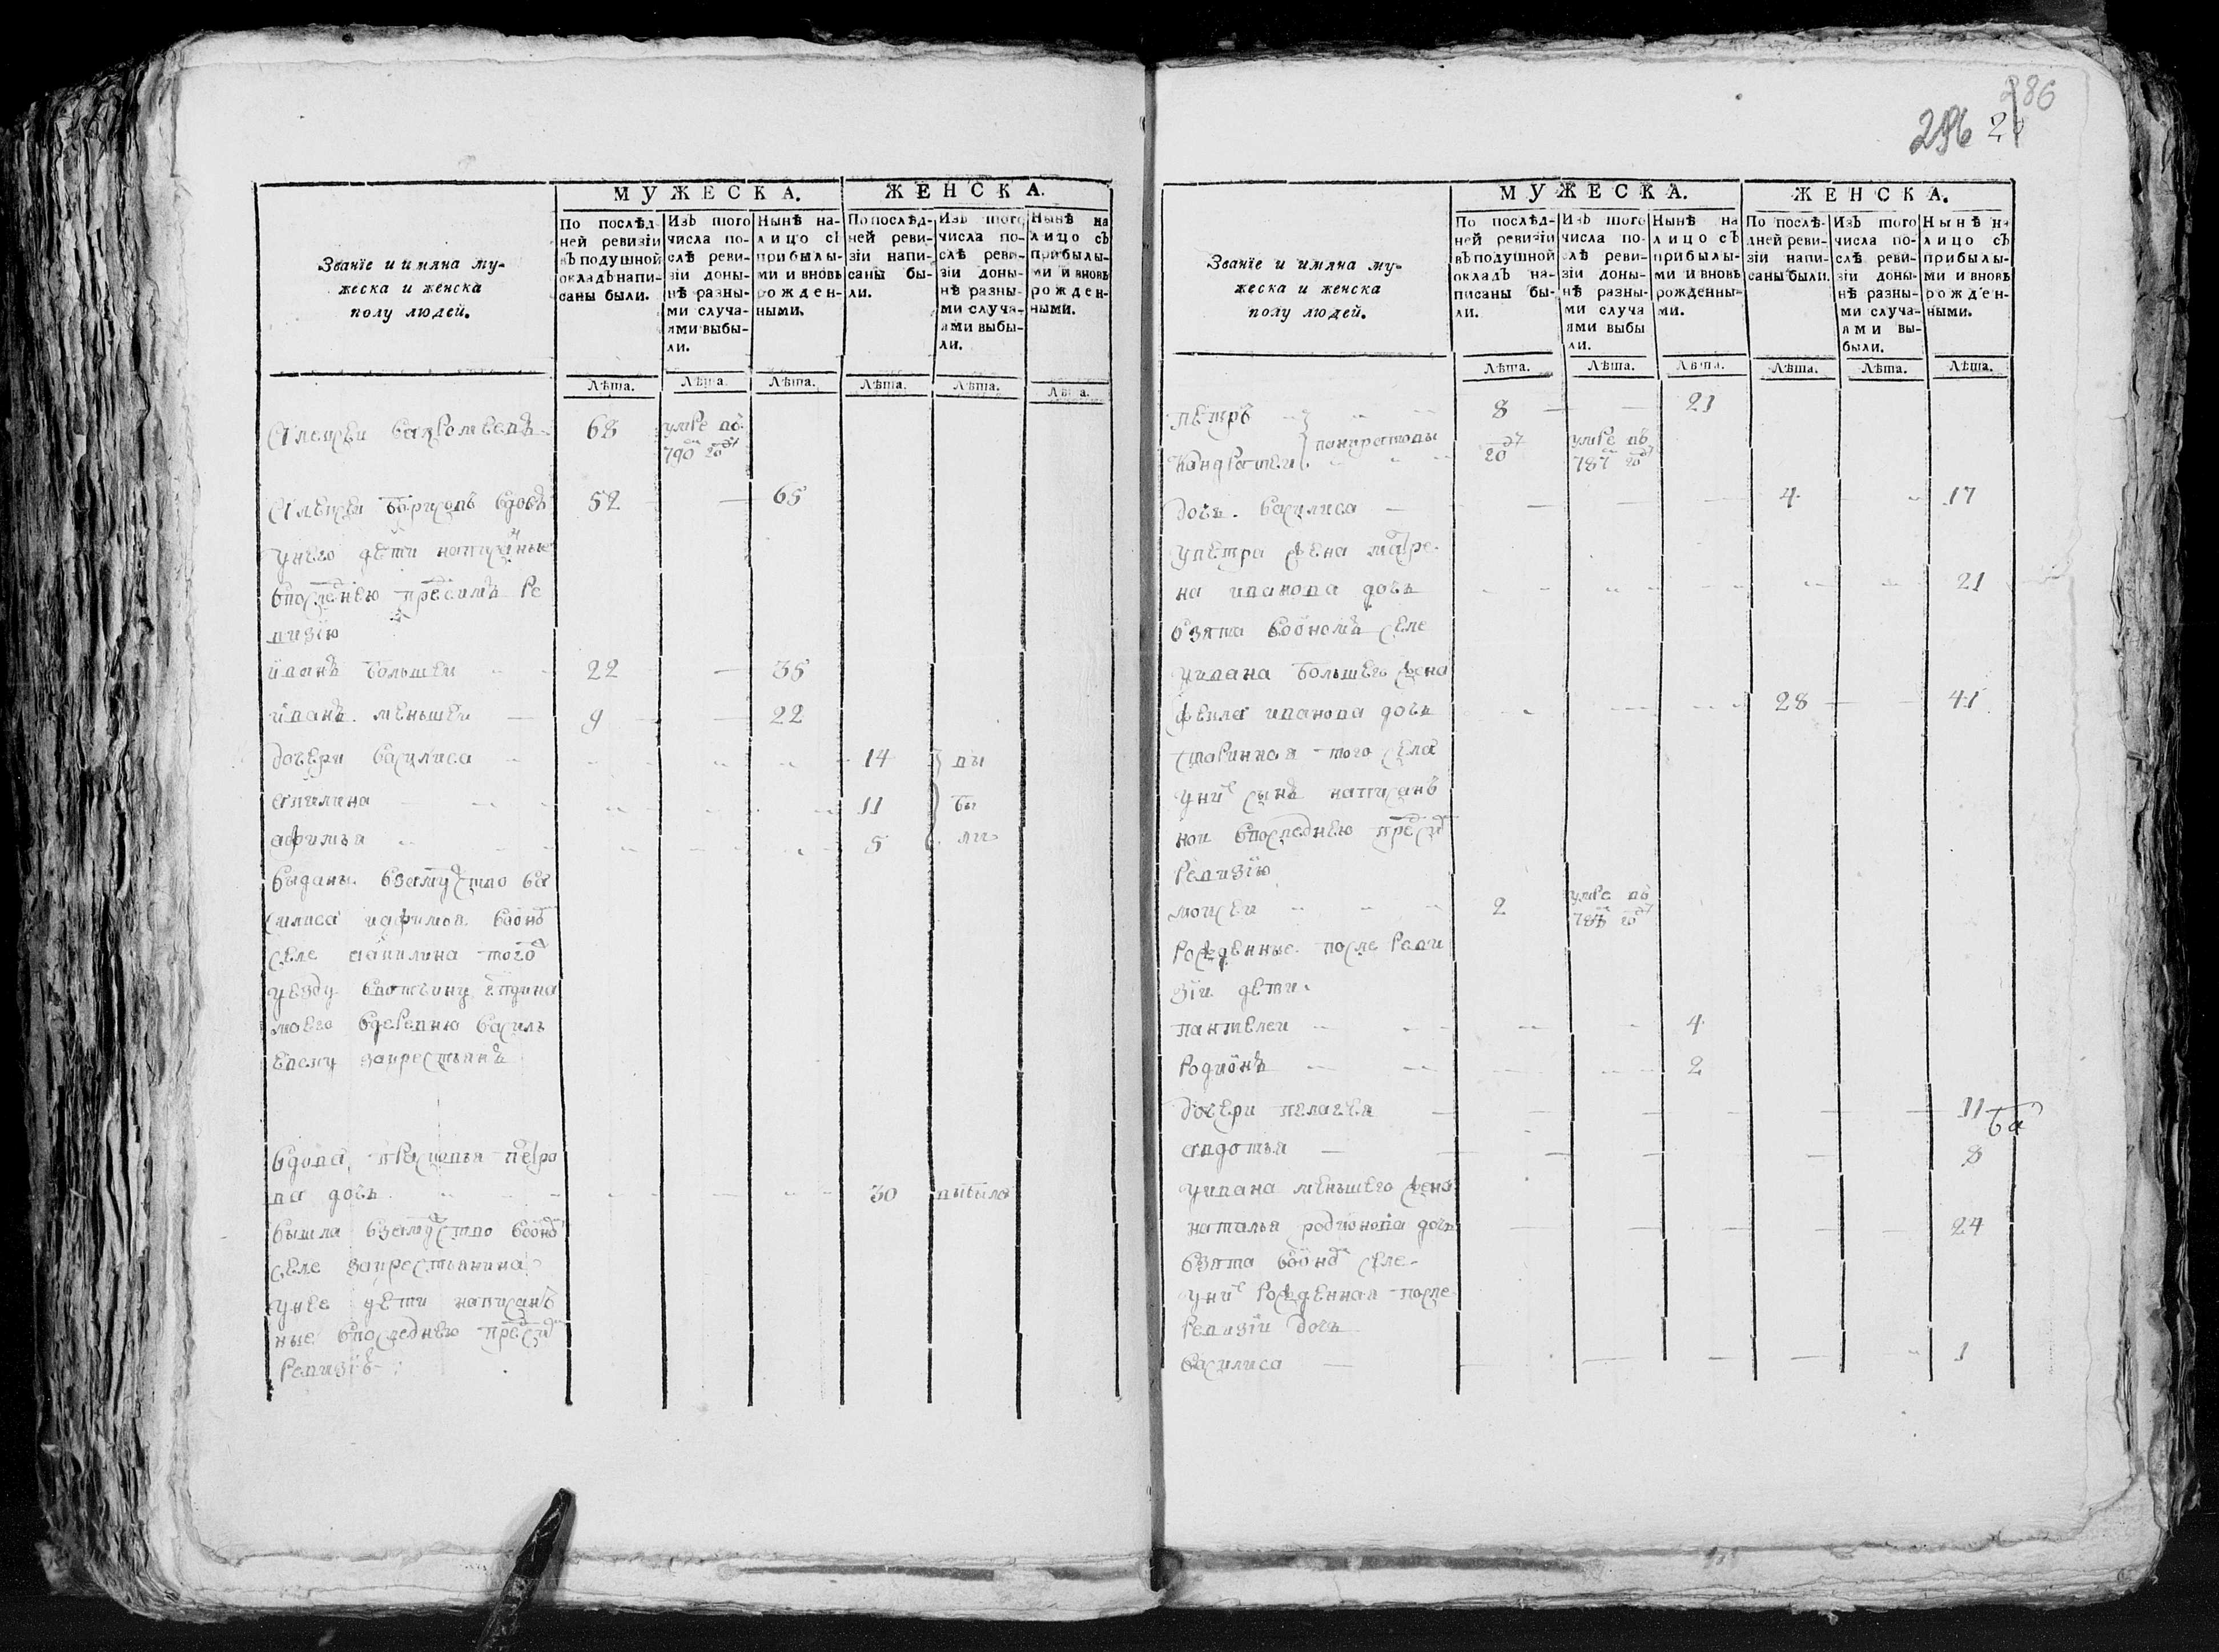 МУЖЕСКА. ЖЕНСКА.
Званїе и имяна му-
жеска и женска
полу людей.
По послѣд-
ней ревизїи
въ подушной
окладъ напи-
саны были.
Изъ того
числа по-
слѣ реви-
зїи доны-
нѣ разны-
ми случа-
ями выбы-
ли.
Нынѣ на-
лицо съ
прибылы-
ми и вновь
рожден-
ными.
По послѣд-
ней реви-
зїи напи-
саны бы-
ли.
Изъ того
числа по-
слѣ реви-
зїи доны-
нѣ разны-
ми случа-
ями выбы-
ли.
Нынѣ на
лицо съ
прибылы-
ми и вновь
рожден-
ными.
Лѣта. Лѣта. Лѣта. Лѣта. Лѣта. Лѣта.
Алексеи 68 умре въ
790 год
Алексеи Борисовъ вдовъ 52 65
унего дети написаные
впоследнею пред симъ ре
визїю
иванъ большеи 22 35
иванъ меньшеи 9 22
дочери василиса 14 вы
апилина 11 бы
афимья 5 ли
выданы взамуство ва
силиса иафимья воонъ
селе аапилина того
уезду ввотчину
моего вдеревню василь
евску закрестьянъ
вдова прасковья петро
ва дочь 30 выбыла
вышла взамуство воонъ
селе закрестьянина
унее дети написанъ
ные впоследнею пред сид
ревизїю
286
286
МУЖЕСКА. ЖЕНСКА.
Званїе и имяна му-
жеска и женска
полу людей.
По послѣд-
ней ревизїи
въ подушной
окладъ на-
писаны бы-
ли.
Изъ того
числа по-
слѣ реви-
зїи доны-
нѣ разны-
ми случа
ями выбы
ли.
Нынѣ на
лицо съ
прибылы-
ми и вновь
рожденны-
ми.
По послѣ-
дней реви-
зїи напи-
саны были.
Изъ того
числа по-
слѣ реви-
зїи доны-
нѣ разны-
ми случа-
ями вы-
были.
Нынѣ на
лицо съ
прибылы-
ми и вновь
рожден-
ными.
Лѣта. Лѣта. Лѣта. Лѣта. Лѣта. Лѣта.
петръ 8 21
кондратеи панкратовы год
20 умре въ
787 год
дочь василиса 4 17
упетра жена матре
на иванова дочь 21
взята воономъ селе
уивана большего жена
фекла иванова дочь 28 41
старинная того села
уних сынъ написанъ
нои впоследнею пред сид
ревизїю
моисеи 2 умре въ
год
рожденные после реви
зїи дети
пантелеи 4
родионъ 2
дочери пелагея 11
авдотья 8
уивана меньшего жена
наталья родионова дочь 24
взята воонъ селе
уних рожденная после
ревизїи дочь
василиса 1